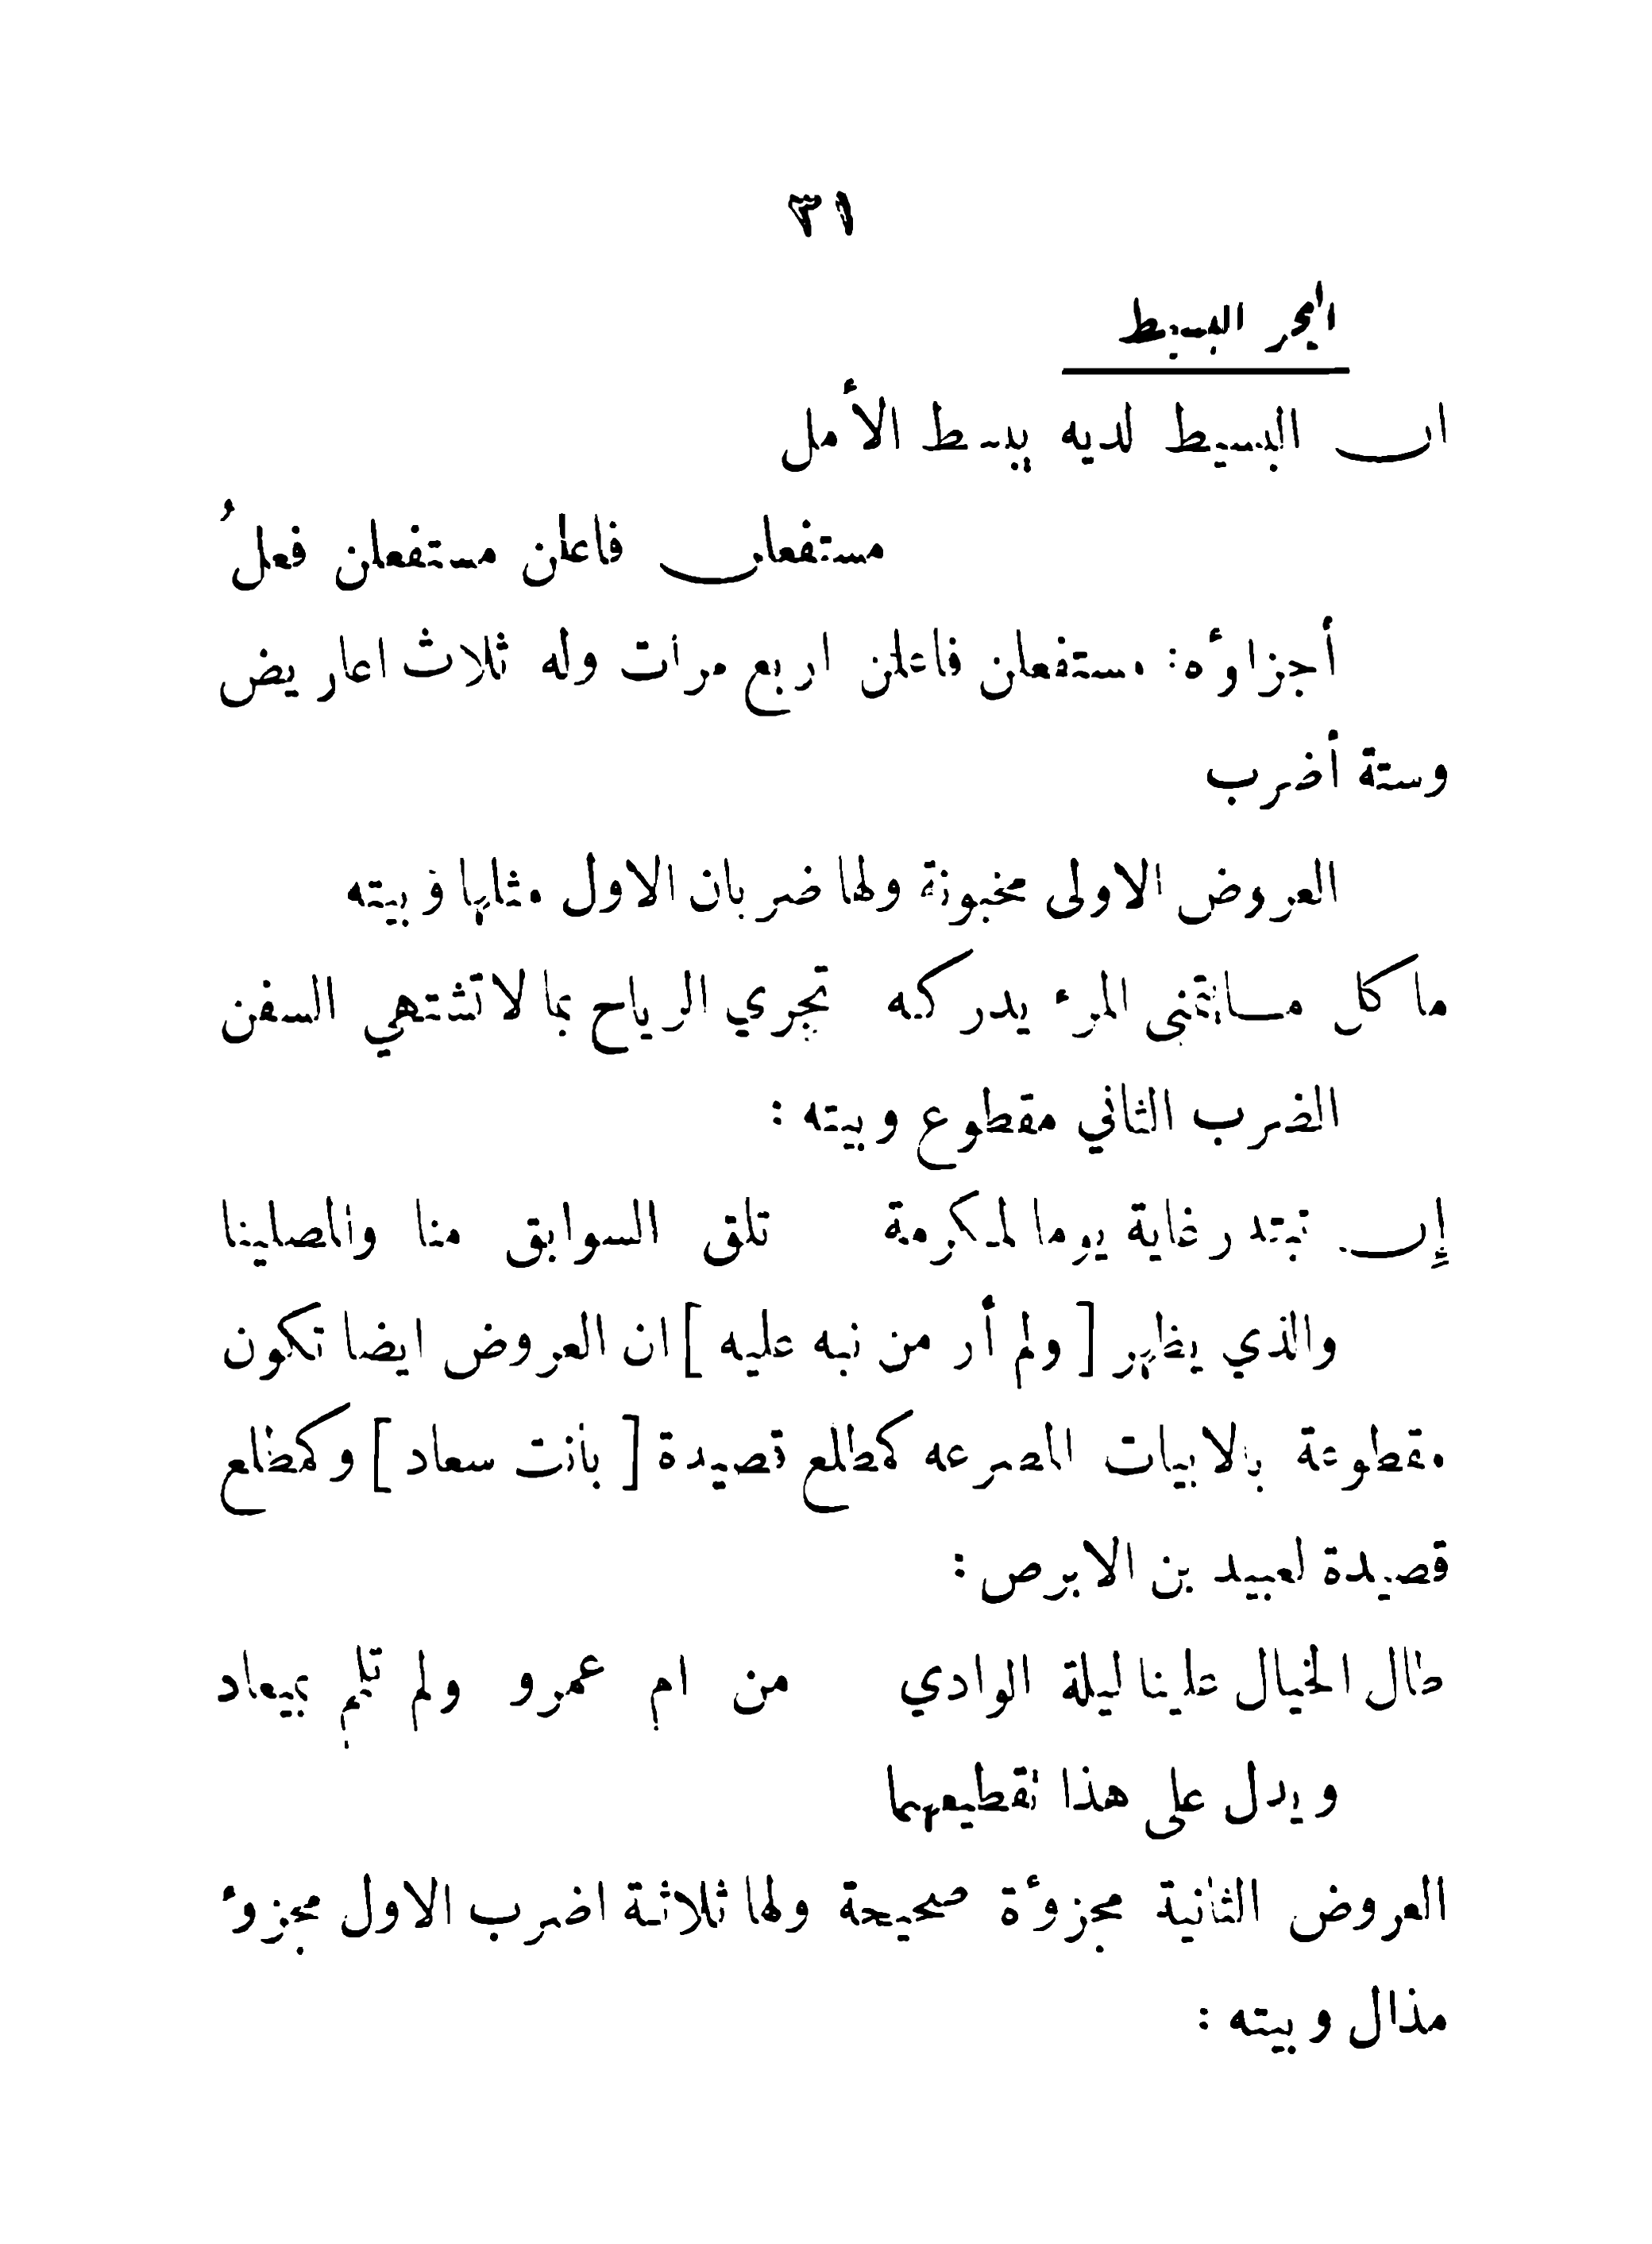 ٣١
البحر البسيط
ان البسيط لديه يبسط الأمل
مستفعلن فاعلن مستفعلن فعلُ
أجزاوٴه: مستفعلن فاعلن اربع مرات وله ثلاث اعاريض
وستة أضرب
العروض الاولى مخبونة ولها ضربان الاول مثلها وبيته
ما كل مايتمنى المرء يدركه تجري الرياح بما لا تشتهي السفن
الضرب الثاني مقطوع وبيته :
إن تبتدر غاية يوما لمكرمة تلق السوابق منا والمصلينا
والذي يظهر [ ولم أر من نبه عليه ] ان العروض ايضا تكون
مقطوعة بالابيات المصرعه كمطلع قصيدة [ بانت سعاد ] وكمطلع
قصيدة لعبيد بن الابرص :
طال الخيال علينا ليلة الوادي من ام عمرو ولم تلمم بميعاد
ويدل على هذا تقطيعهما
العروض الثانية مجزوٴة صحيحة ولها ثلاثة اضرب الاول مجزوء
مذال وبيته :